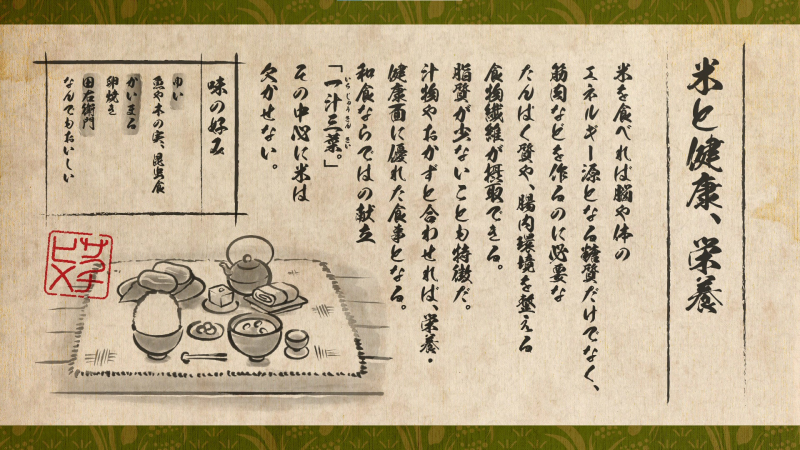 米と健康、栄養
米を食べれば脳や体の
エネルギー源となる糖質だけでなく、
筋肉などを作るのに必要な
たんぱく質や、腸内環境を整える
食物繊維が摂取できる。
脂質が少ないことも特徴だ。
汁物やおかずと合わせれば、栄養・
健康面に優れた食事となる。
和食ならではの献立
「一汁三菜。」
いちじゅうさんさい
その中心に米は
欠かせない。
味の好み
ゆい
魚や木の実、昆虫食
かいまる
卵焼き
田右衛門
なんでもおいしい